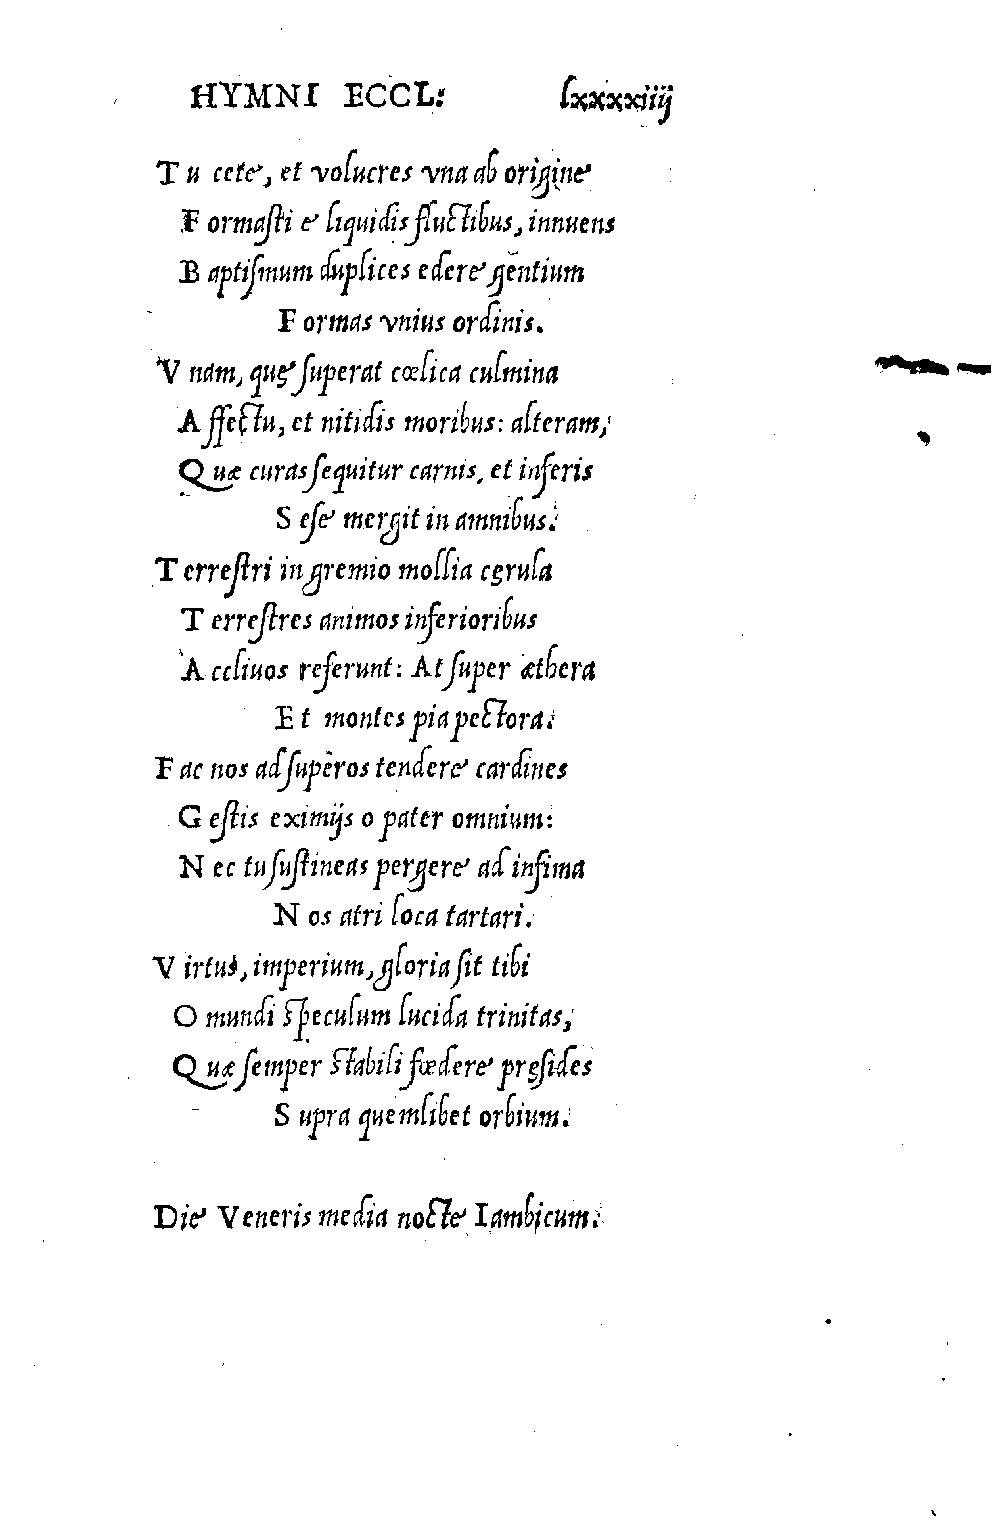 HYMNI ECCL: lxxxxiiij
Tu cete, et volucres vna ab origine
Formasti e liquidis fluctibus, innuens
Baptismum duplices edere gentium
Formas vnius ordinis.
Vnam, quę superat cœlica culmina
Affectu, et nitidis moribus: alteram,
Quæ curas sequitur carnis, et inferis
Sese mergit in amnibus.
Terrestri in gremio mollia cęrula
Terrestres animos inferioribus
Accliuos referunt: At super æthera
Et montes pia pectora.
Fac nos ad superos tendere cardines
Gestis eximijs o pater omnium:
Nec tu sustineas pergere ad infima
Nos atri loca tartari.
Virtus, imperium, gloria sit tibi
O mundi speculum lucida trinitas,
Quæ semper stabili fœdere pręsides
Supra quemlibet orbium.
Die Veneris media nocte Iambicum.